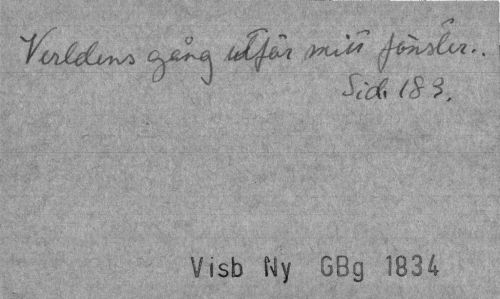 Verldens gång utför mitt fönster..
Sid. 183.
Visb Ny GBg 1834